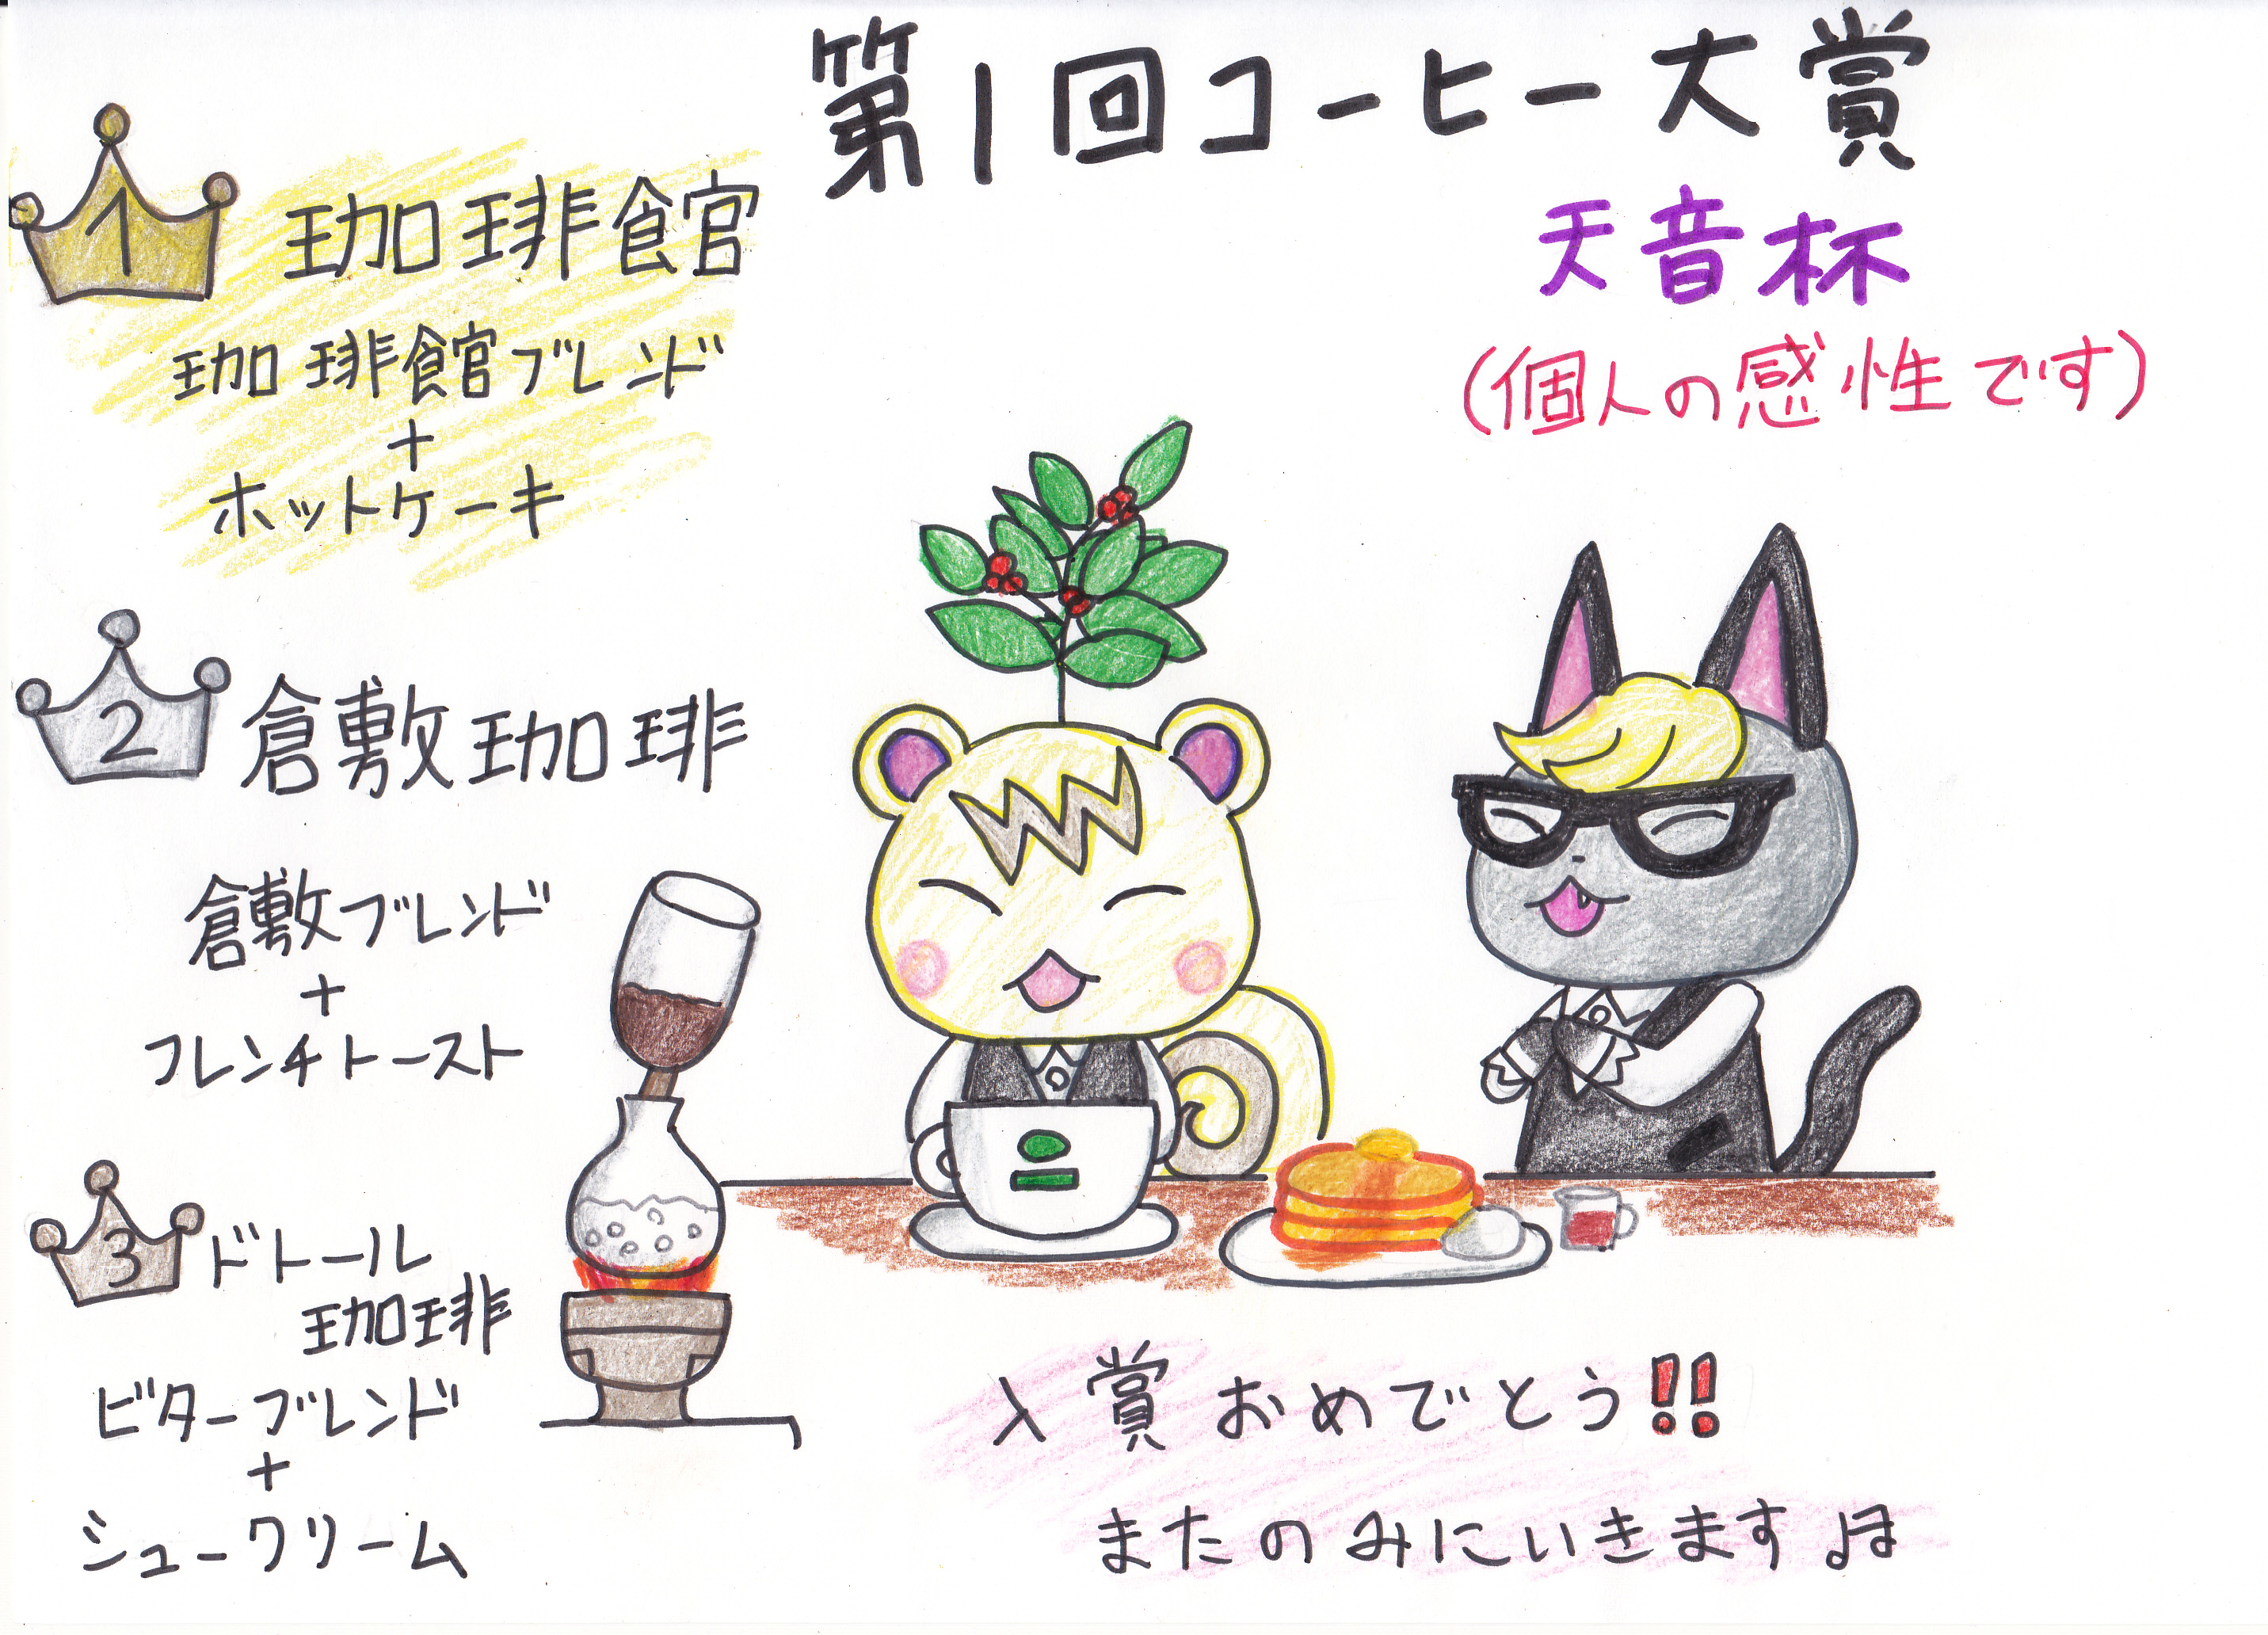 第1回コーヒー大賞
天音杯
(個人の感性です)
1 珈琲館
珈琲館ブレンド
+
ホットケーキ
2 倉敷珈琲
倉敷ブレンド
+
フレンチトースト
3 ドトール
珈琲
ビターブレンド
+
シュークリーム
入賞おめでとう!!
またのみにいきます♪